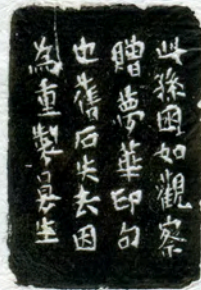 此孫困如觀察
贈夢華印句
也舊石失去因
為重製㝵生